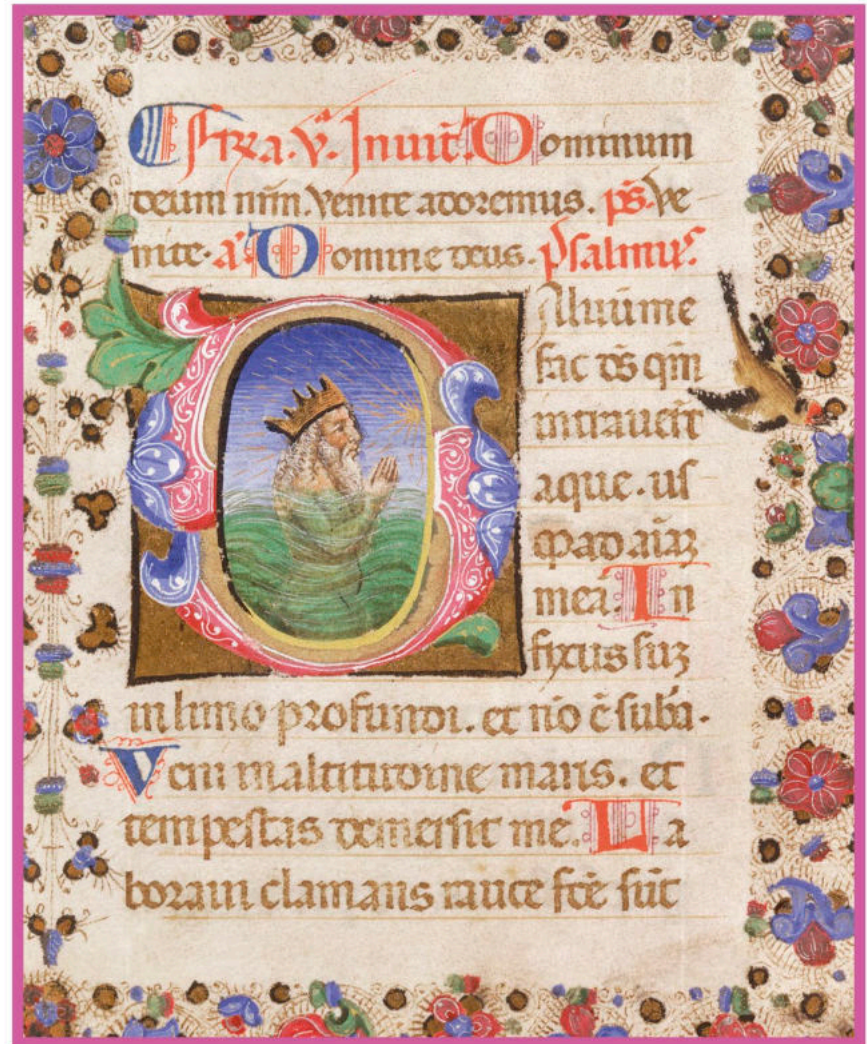 Feria.v. Inuit. Dominum
deum nr̄m. venite adoremus. ps̄. Ve
nite. a. Domine deus. psalmus.
Saluū me
fac ds̄ qm̄
intrauer̄t
aque. us
qȝ ad aīaȝ
meā. In
fixus suȝ
in limo profundi. et nō ē suba.
Veni in altitudine maris. et
tempestas demersit me. La
boraui clamans rauce fcē sūt